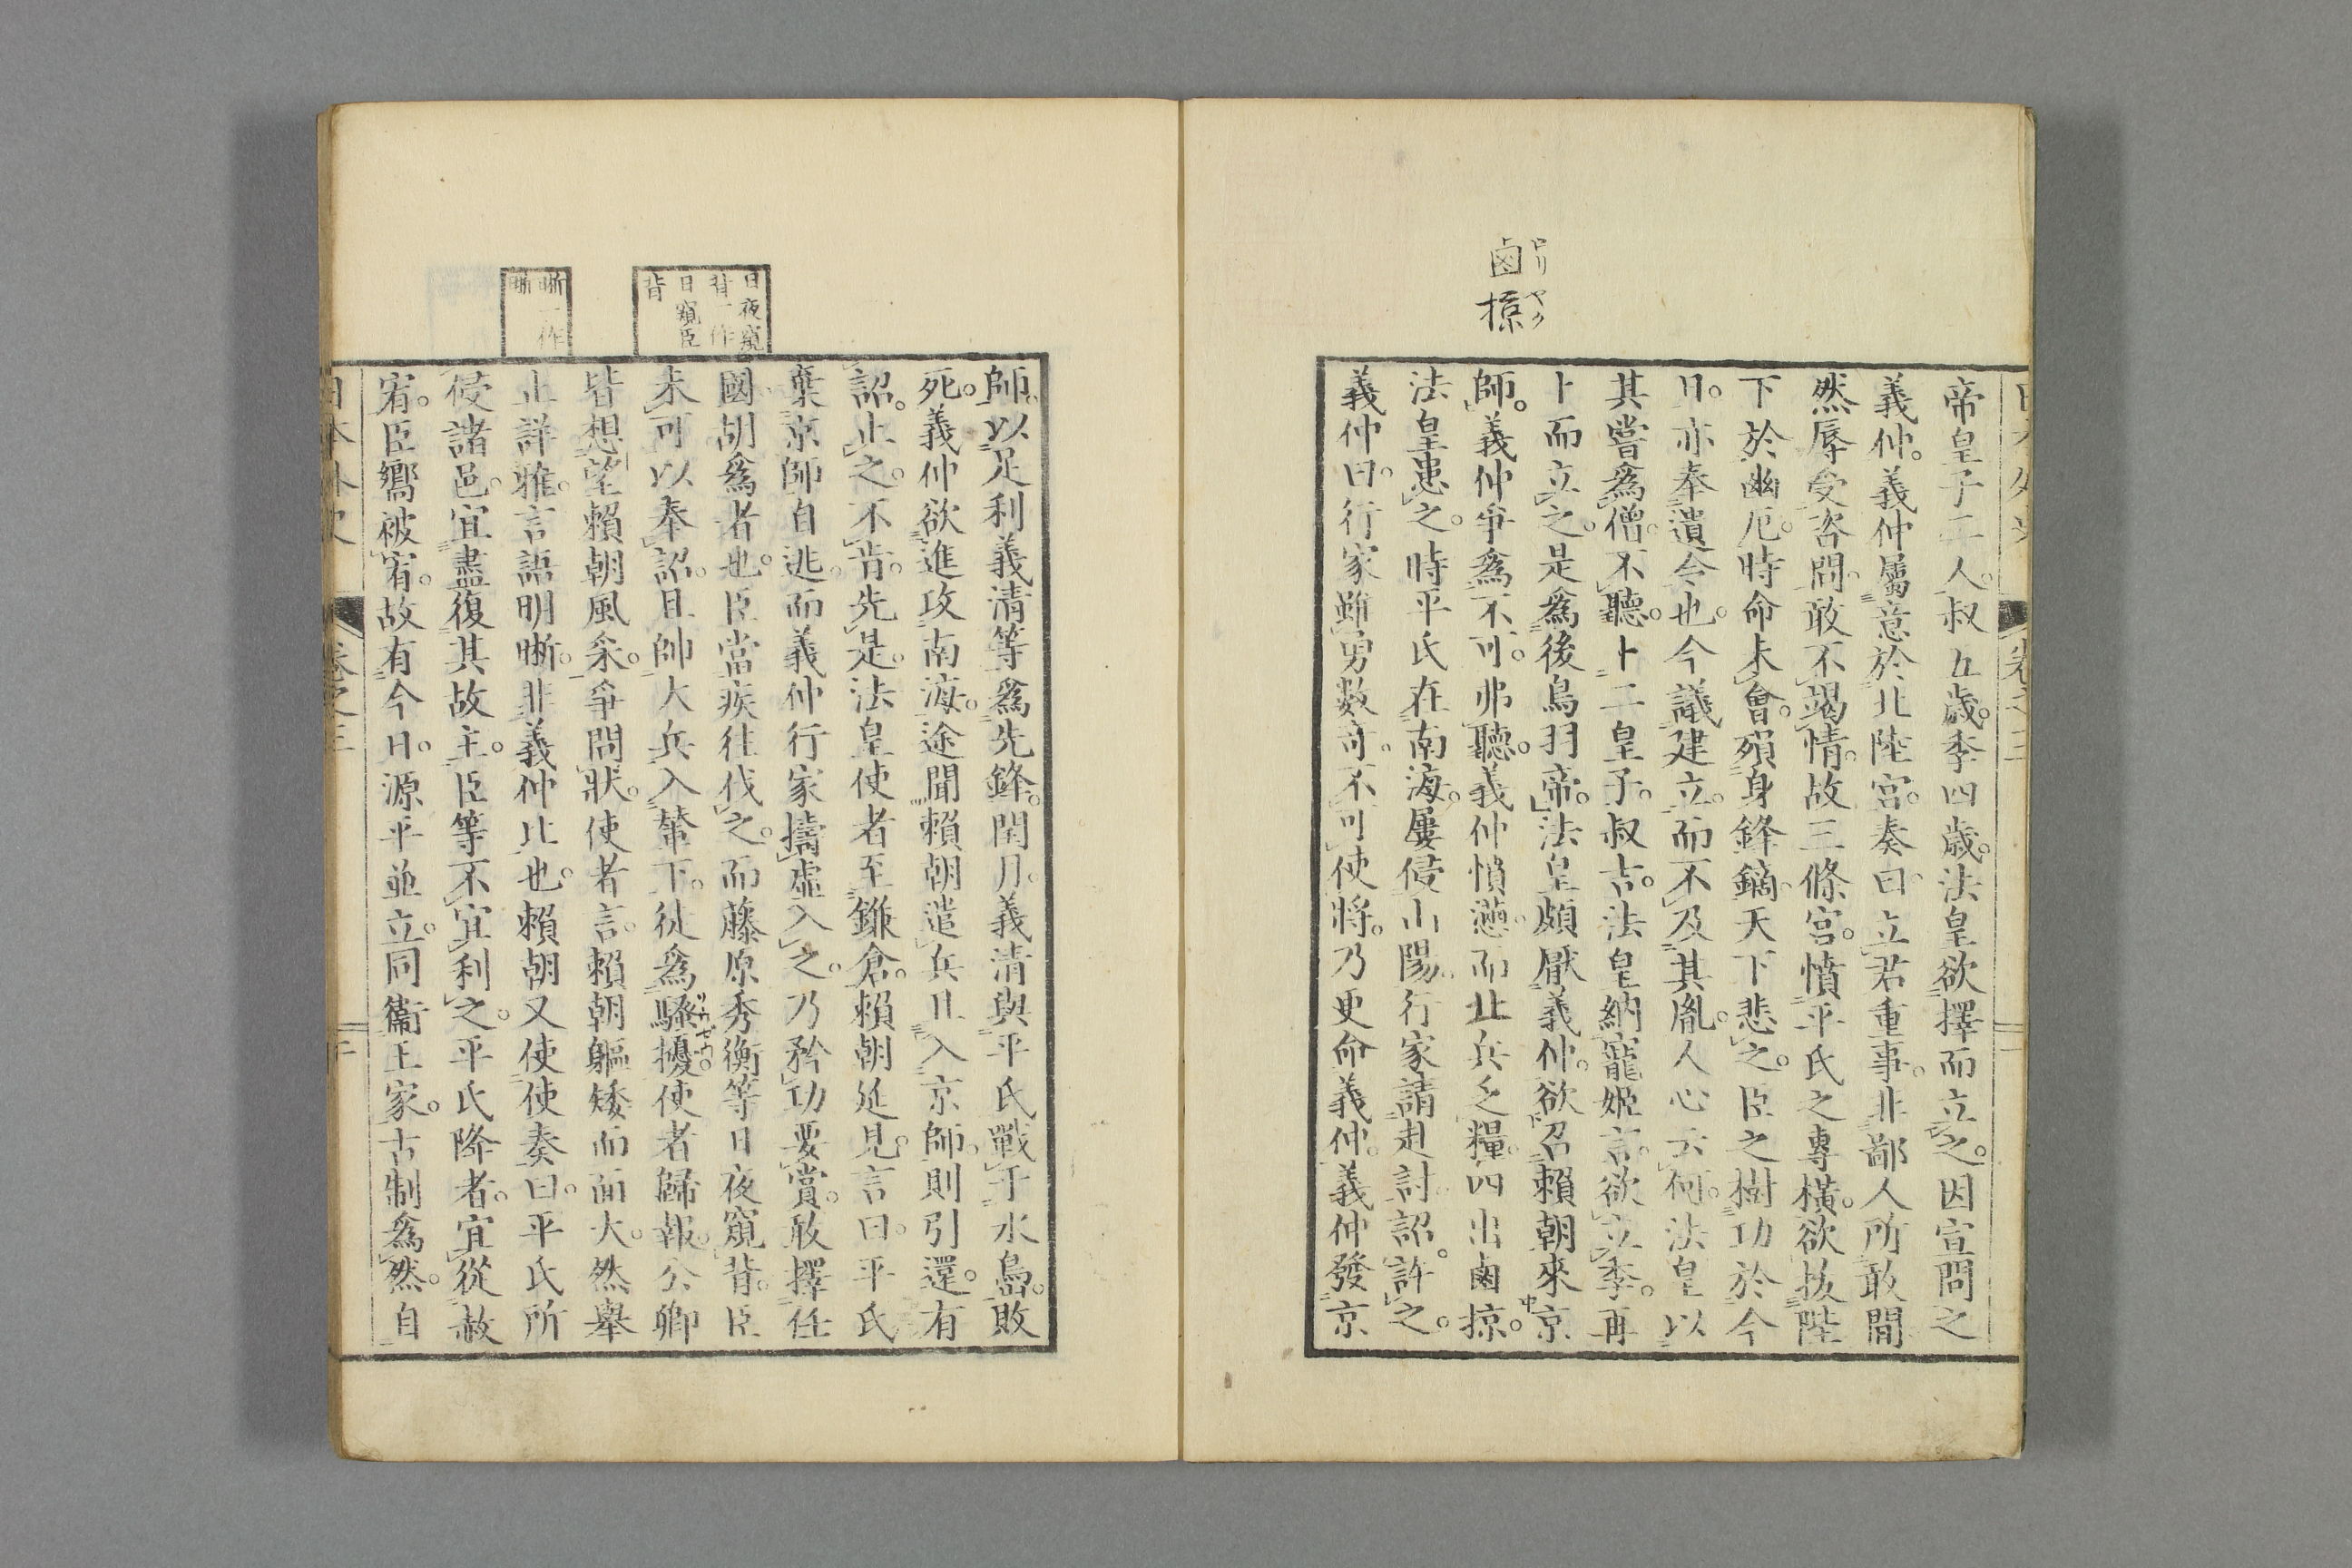 鹵掠
ロリヤク
帝皇子二人。叔五歲。季四歲。法皇欲擇而立之。因宣問之
義仲。義仲屬意於北陸宮。奏曰。立君重事。非鄙人所敢間
然。辱受咨問。敢不竭情。故三條宮。憤平氏之專橫。欲拔陛
下於幽厄。時命未會。殞身鋒鏑。天下悲之。臣之樹功於今
日。亦奉遺令也。今議建立。而不及其胤。人心云何。法皇以
其嘗爲僧。不聽。卜二皇子。叔吉。法皇納寵姬言。欲立季。再
卜而立之。是爲後鳥羽帝。法皇頗厭義仲。欲召賴朝來京
師。義仲爭爲不可。弗聽。義仲憤懣。而北兵乏糧。四出鹵掠。
法皇患之。時平氏在南海。屢侵山陽。行家請赴討。詔許之。
義仲曰。行家雖勇數奇。不可使將。乃更命義仲。義仲發京
師。以足利義清等爲先鋒。閏月。義清與平氏戰于水島。敗
死。義仲欲進攻南海。途聞賴朝遣兵且入京師。則引還。有
詔止之。不肯。先是。法皇使者至鎌倉。賴朝延見。言曰。平氏
棄京師自逃。而義仲行家擣虛入之。乃矜功要賞。敢擇任
國。胡爲者也。臣當疾往伐之。而藤原秀衡等日夜窺背。臣
未可以奉詔。且帥大兵入輦下。徒爲騷擾。使者歸報。公卿
皆想望賴朝風采。爭問狀。使者言。賴朝軀矮而面大。然舉
止詳雅。言語明晰。非義仲比也。賴朝又使使奏曰。平氏所
侵諸邑。宜盡復其故主。臣等不宜利之。平氏降者。宜從赦
宥。臣嚮被宥。故有今日。源平並立。同衞王家。古制爲然。自
日夜窺
背一作
日窺臣
背
晰一作
日本外史 卷之三